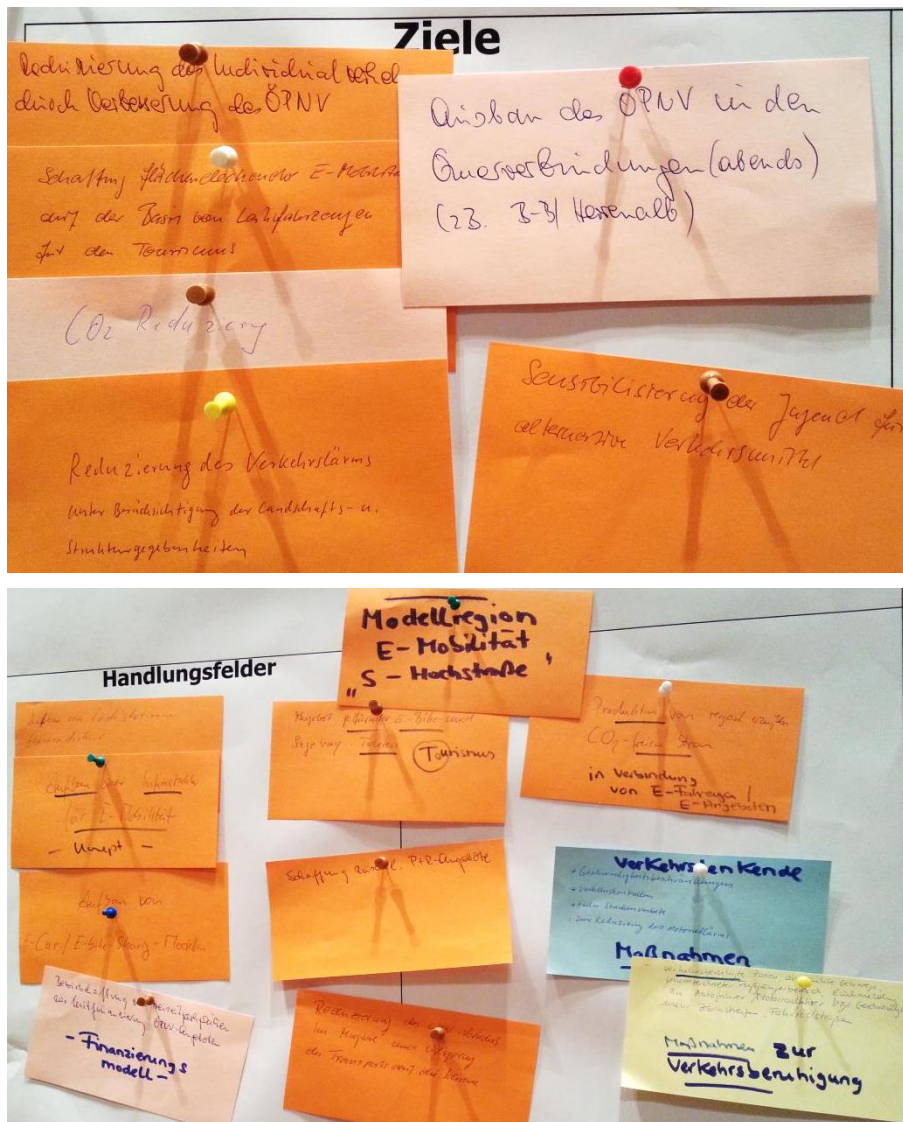 Ziele
Reduzierung des Individualverkeh
durch Verbesserung des ÖPNV
Schaffung flächendeckender E-Mobilitä
auf der Basis von Leihfahrzeugen
für den Tourismus
CO2 Reduzierung
Reduzierung des Verkehrslärms
unter Berücksichtigung der Landschafts- u.
Strukturgegebenheiten
Ausbau des ÖPNV in den
Querverbindungen (abends)
(zB. B-B/Herrenalb)
Sensibilisierung der Jugend für
alternative Verkehrsmittel
Modellregion
E-Mobilität
"S-Hochstraße"
Handlungsfelder
Aufbau von Ladestationen
Aufbau einer Infrastruktur
für E-Mobilität
- Konzept -
Aufbau von
E-Car/E-bike-Sharing-Modellen
- Finanzierungs
modell -
Angebot geführter E-Bike- und
Segway-Touren
Tourismus
Schaffung zusätzl. P+R-Angebote
Reduzierung des
im Murgtal unter
des Transports auf die Schiene
Produktion von regional erzeugten
CO2-freien Strom
in Verbindung
von E-Fahrzeugen /
E-Angeboten
Verkehrslenkende
+ Geschwindigkeitsbeschränkungen
+ Verkehrskontrollen
+ Streckenverbote
zur Reduzierung des Motorradlärms
Maßnahmen
Maßnahmen zur
Verkehrsberuhigung